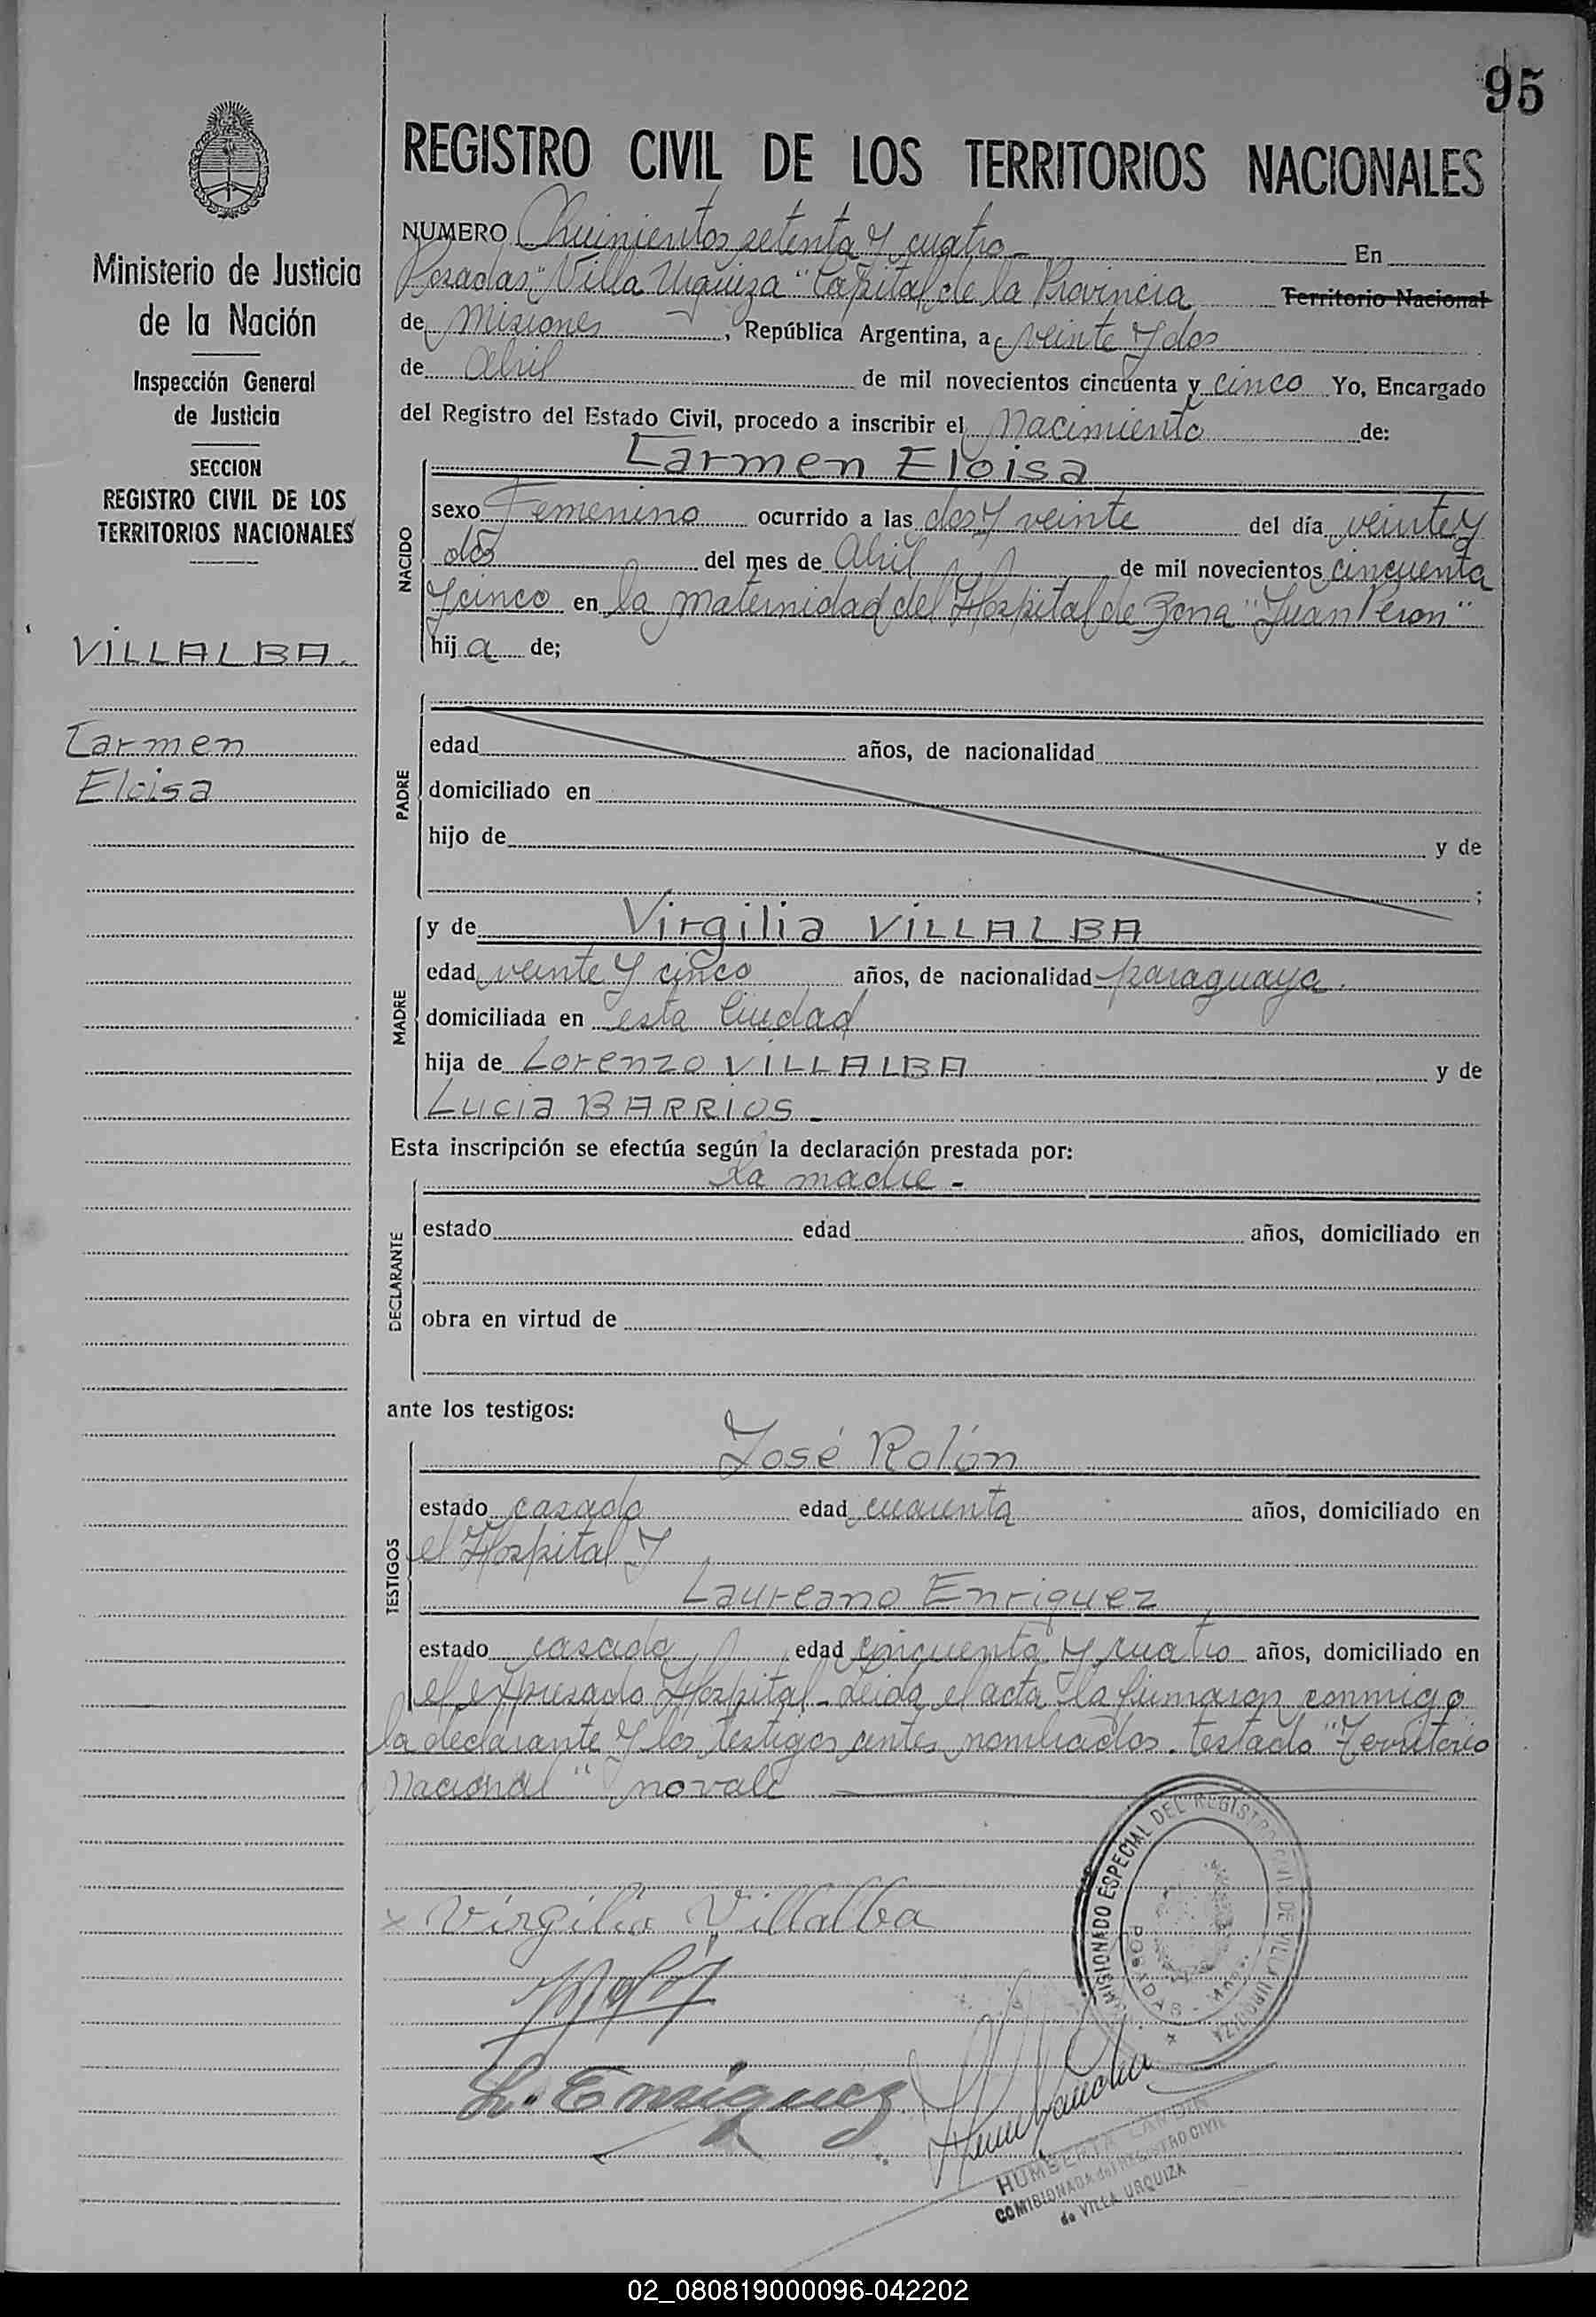 95
REGISTRO CIVIL DE LOS TERRITORIOS NACIONALES
Ministerio de Justicia
de la Nación
Inspección General
de Justicia
SECCION
REGISTRO CIVIL DE LOS
TERRITORIOS NACIONALES
VILLALBA.
Carmen
Eloisa
NUMERO Quinientos setenta y cuatro - En
Posadas "Villa Urquiza" Capital de la Provincia Territorio Nacional
de Misiones, República Argentina, a veinte y dos
de Abril de mil novecientos cincuenta y cinco Yo, Encargado
del Registro del Estado Civil, procedo a inscribir el Nacimiento de:
Carmen Eloisa
NACIDO
sexo Femenino ocurrido a las dos y veinte del día veinte y
dos del mes de Abril de mil novecientos cincuenta
y cinco en la maternidad del Hospital de Zona "Juan Peron"
hija de;
PADRE
edad años, de nacionalidad
domiciliado en
hijo de y de
;
MADRE
y de Virgilia VILLALBA
edad veinte y cinco años, de nacionalidad paraguaya.
domiciliada en esta Ciudad
hija de Lorenzo VILLALBA y de
Lucia BARRIOS -
Esta inscripción se efectúa según la declaración prestada por:
la madre -
DECLARANTE
estado edad años, domiciliado en
obra en virtud de
ante los testigos:
José Rolón
TESTIGOS
estado casado edad cuarenta años, domiciliado en
el Hospital y
Laureano Enriquez
estado casado edad cincuenta y cuatro años, domiciliado en
el expresado Hospital - Leida el acta la firmaron conmigo
la declarante y los testigos antes nombrados. testado "Territorio
Nacional" no vale
COMISIONADO ESPECIAL DEL REGISTRO CIVIL DE VILLA URQUIZA
POSADAS
x Virgilia Villalba
L. Enriquez
HUMBERTA
COMISIONADA del REGISTRO CIVIL
de VILLA URQUIZA
02_080819000096-042202